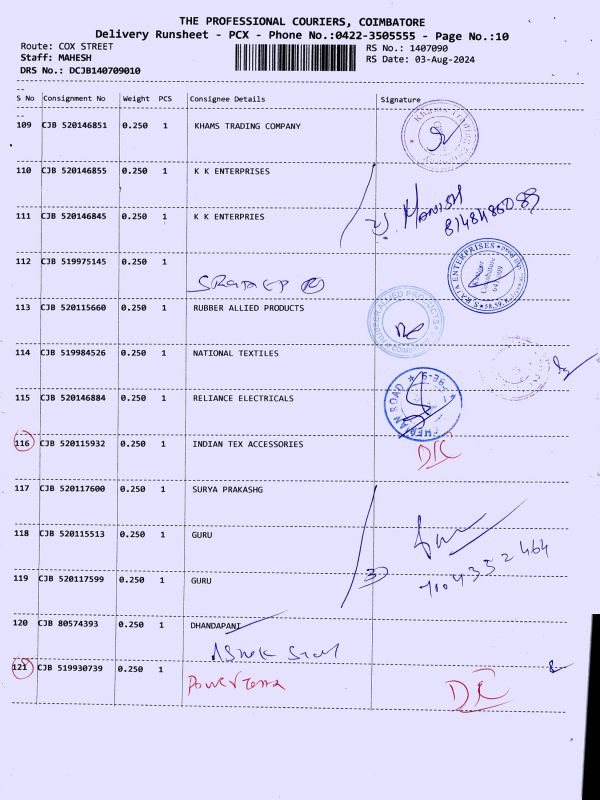 THE PROFESSIONAL COURIERS, COIMBATORE
Delivery Runsheet - PCX - Phone No.:0422-3505555 - Page No.:10
Route: COX STREET
RS No.: 1407090
Staff: MAHESH
RS Date: 03-Aug-2024
DRS No.: DCJB140709010
--
S No Consignment No Weight PCS Consignee Details Signature
--
109 CJB 520146851 0.250 1 KHAMS TRADING COMPANY
110 CJB 520146855 0.250 1 K K ENTERPRISES
111 CJB 520146845 0.250 1 K K ENTERPRIES
2) Manish
112 CJB 519975145 0.250 1
S.RATA ENTERPRISES
113 CJB 520115660 0.250 1 RUBBER ALLIED PRODUCTS
RUBBER ALLIED PRODUCTS
114 CJB 519984526 0.250 1 NATIONAL TEXTILES
115 CJB 520146884 0.250 1 RELIANCE ELECTRICALS
116 CJB 520115932 0.250 1 INDIAN TEX ACCESSORIES
117 CJB 520117600 0.250 1 SURYA PRAKASHG
118 CJB 520115513 0.250 1 GURU
119 CJB 520117599 0.250 1 GURU
3)
120 CJB 80574393 0.250 1 DHANDAPANI
121 CJB 519930739 0.250 1